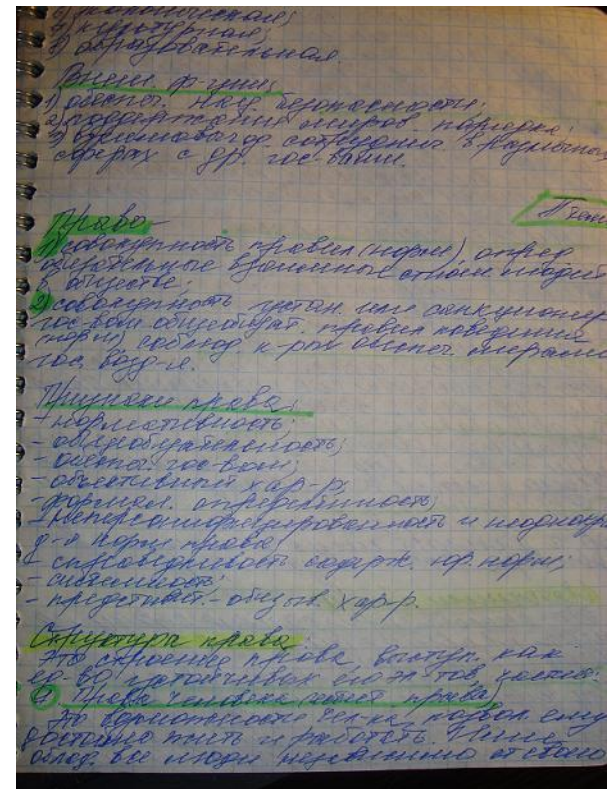 6) экологическая;
7) культурная;
8) образовательная.
Внешн. ф-ции:
1) обеспеч. нац. безопасности;
2) поддержание миров. порядка;
3) взаимовыгод. сотруднич. в различных
сферах с др. гос-вами.
Право-
1) совокупность правил (норм), опред.
обязательные взаимные отнош. людей
в обществе;
2) совокупность устан. или санкционир.
гос-вом общеобязат. правил поведения
(норм) соблюд. к-рых обеспеч. мерами
гос. возд-я.
Признаки права:
- нормативность;
- общеобязательность;
- обеспеч. гос-вом;
- объективный хар-р;
- формал. определённость;
- неперсонифицированность и неоднокр.
д-я норм права;
- справедливость содерж. юр. норм;
- системность;
- представит.-обязыв. хар-р.
Структура права:
Это строение права, выступ. как
ед-во устойчивых его эл-тов, частей:
1) Права человека (естеств. права)
Это возможности чел-ка, позвол. ему
достойно жить и работать. Ими
облад. все люди независимо от своего